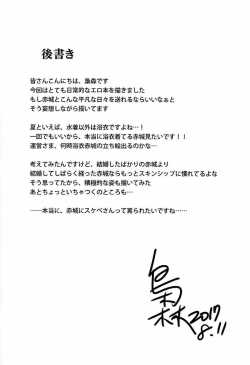 後書き
皆さんこんにちは、梟森です
今回はとても日常的なエロ本を描きました
もし赤城とこんな平凡な日々を送れるならいいなぁと
そう妄想しながら描いてます
夏といえば、水着以外は浴衣ですよね…!
一回でもいいから、本当に浴衣赤城見たいです!!
運営さま、何時浴衣赤城の立ち絵出るのか…
考えてみたんですけど、結婚したばかりの赤城より
結婚してしばらく経った赤城ならもっとスキンシップに慣れてるよな
そう思ってたから、積極的な姿も描いてみた
あとちょっといちゃつくのところも…
……本当に、赤城にスケベさんって罵られたいですね…
梟森 2017
8.11